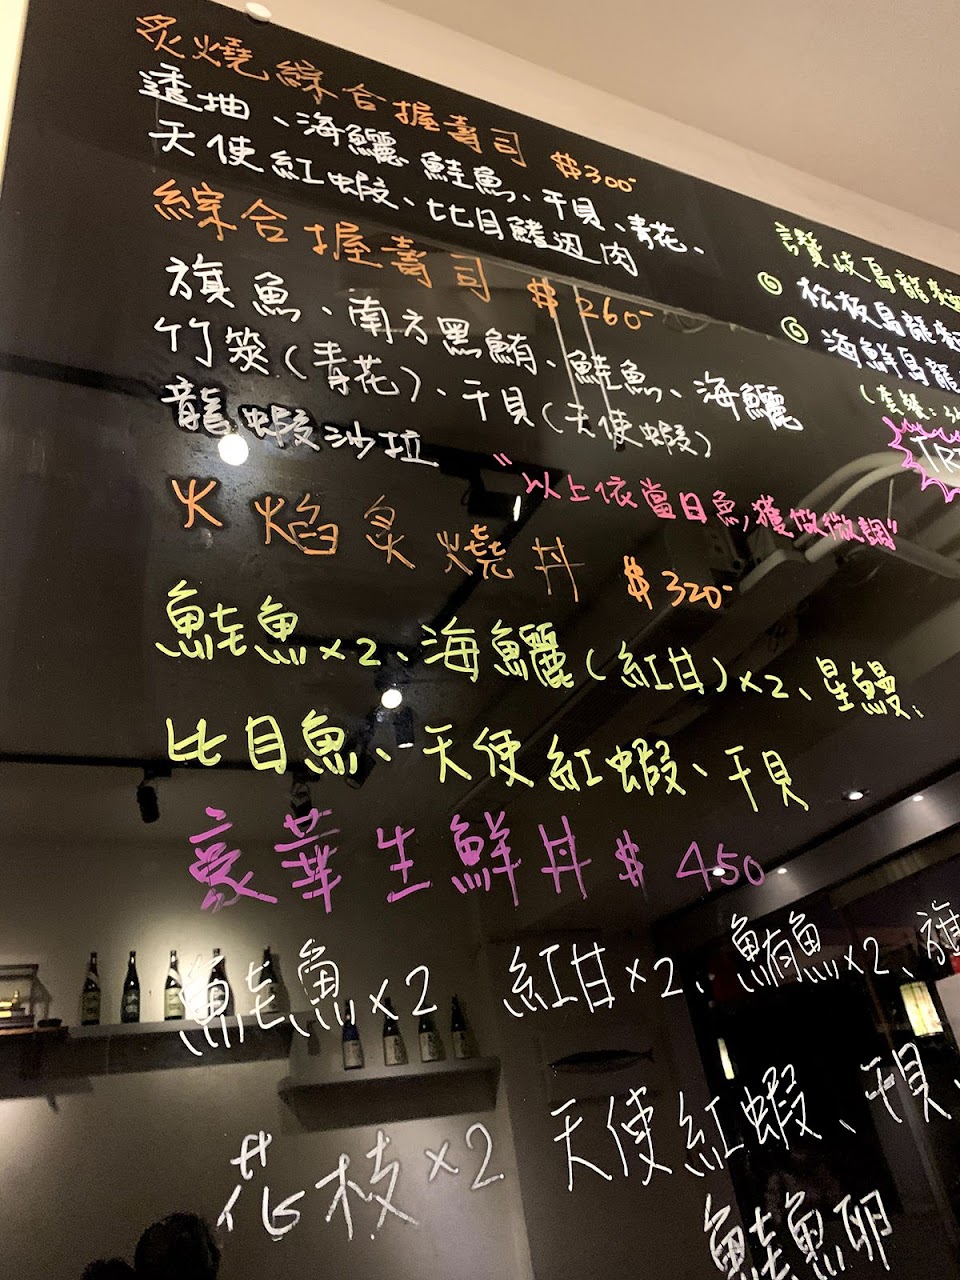 炙燒綜合握壽司 $300-
透抽、海鱺 鮭魚、干貝、青花、
天使紅蝦、比目鰭边肉
綜合握壽司 $260-
旗魚、南方黑鮪、鮭魚、海鱺
竹筴(青花)、干貝(天使蝦)
龍蝦沙拉
"以上依當日魚獲做微調"
火焰炙燒丼 $320-
鮭魚x2、海鱺(紅甘)x2、星鰻、
比目魚、天使紅蝦、干貝
豪華生鮮丼 $450
鮭魚x2 紅甘x2、鮪魚x2、旗
花枝x2 天使紅蝦、干貝、
鮭魚卵
讚岐烏龍麵
松板烏龍麵
海鮮烏龍
(套餐: